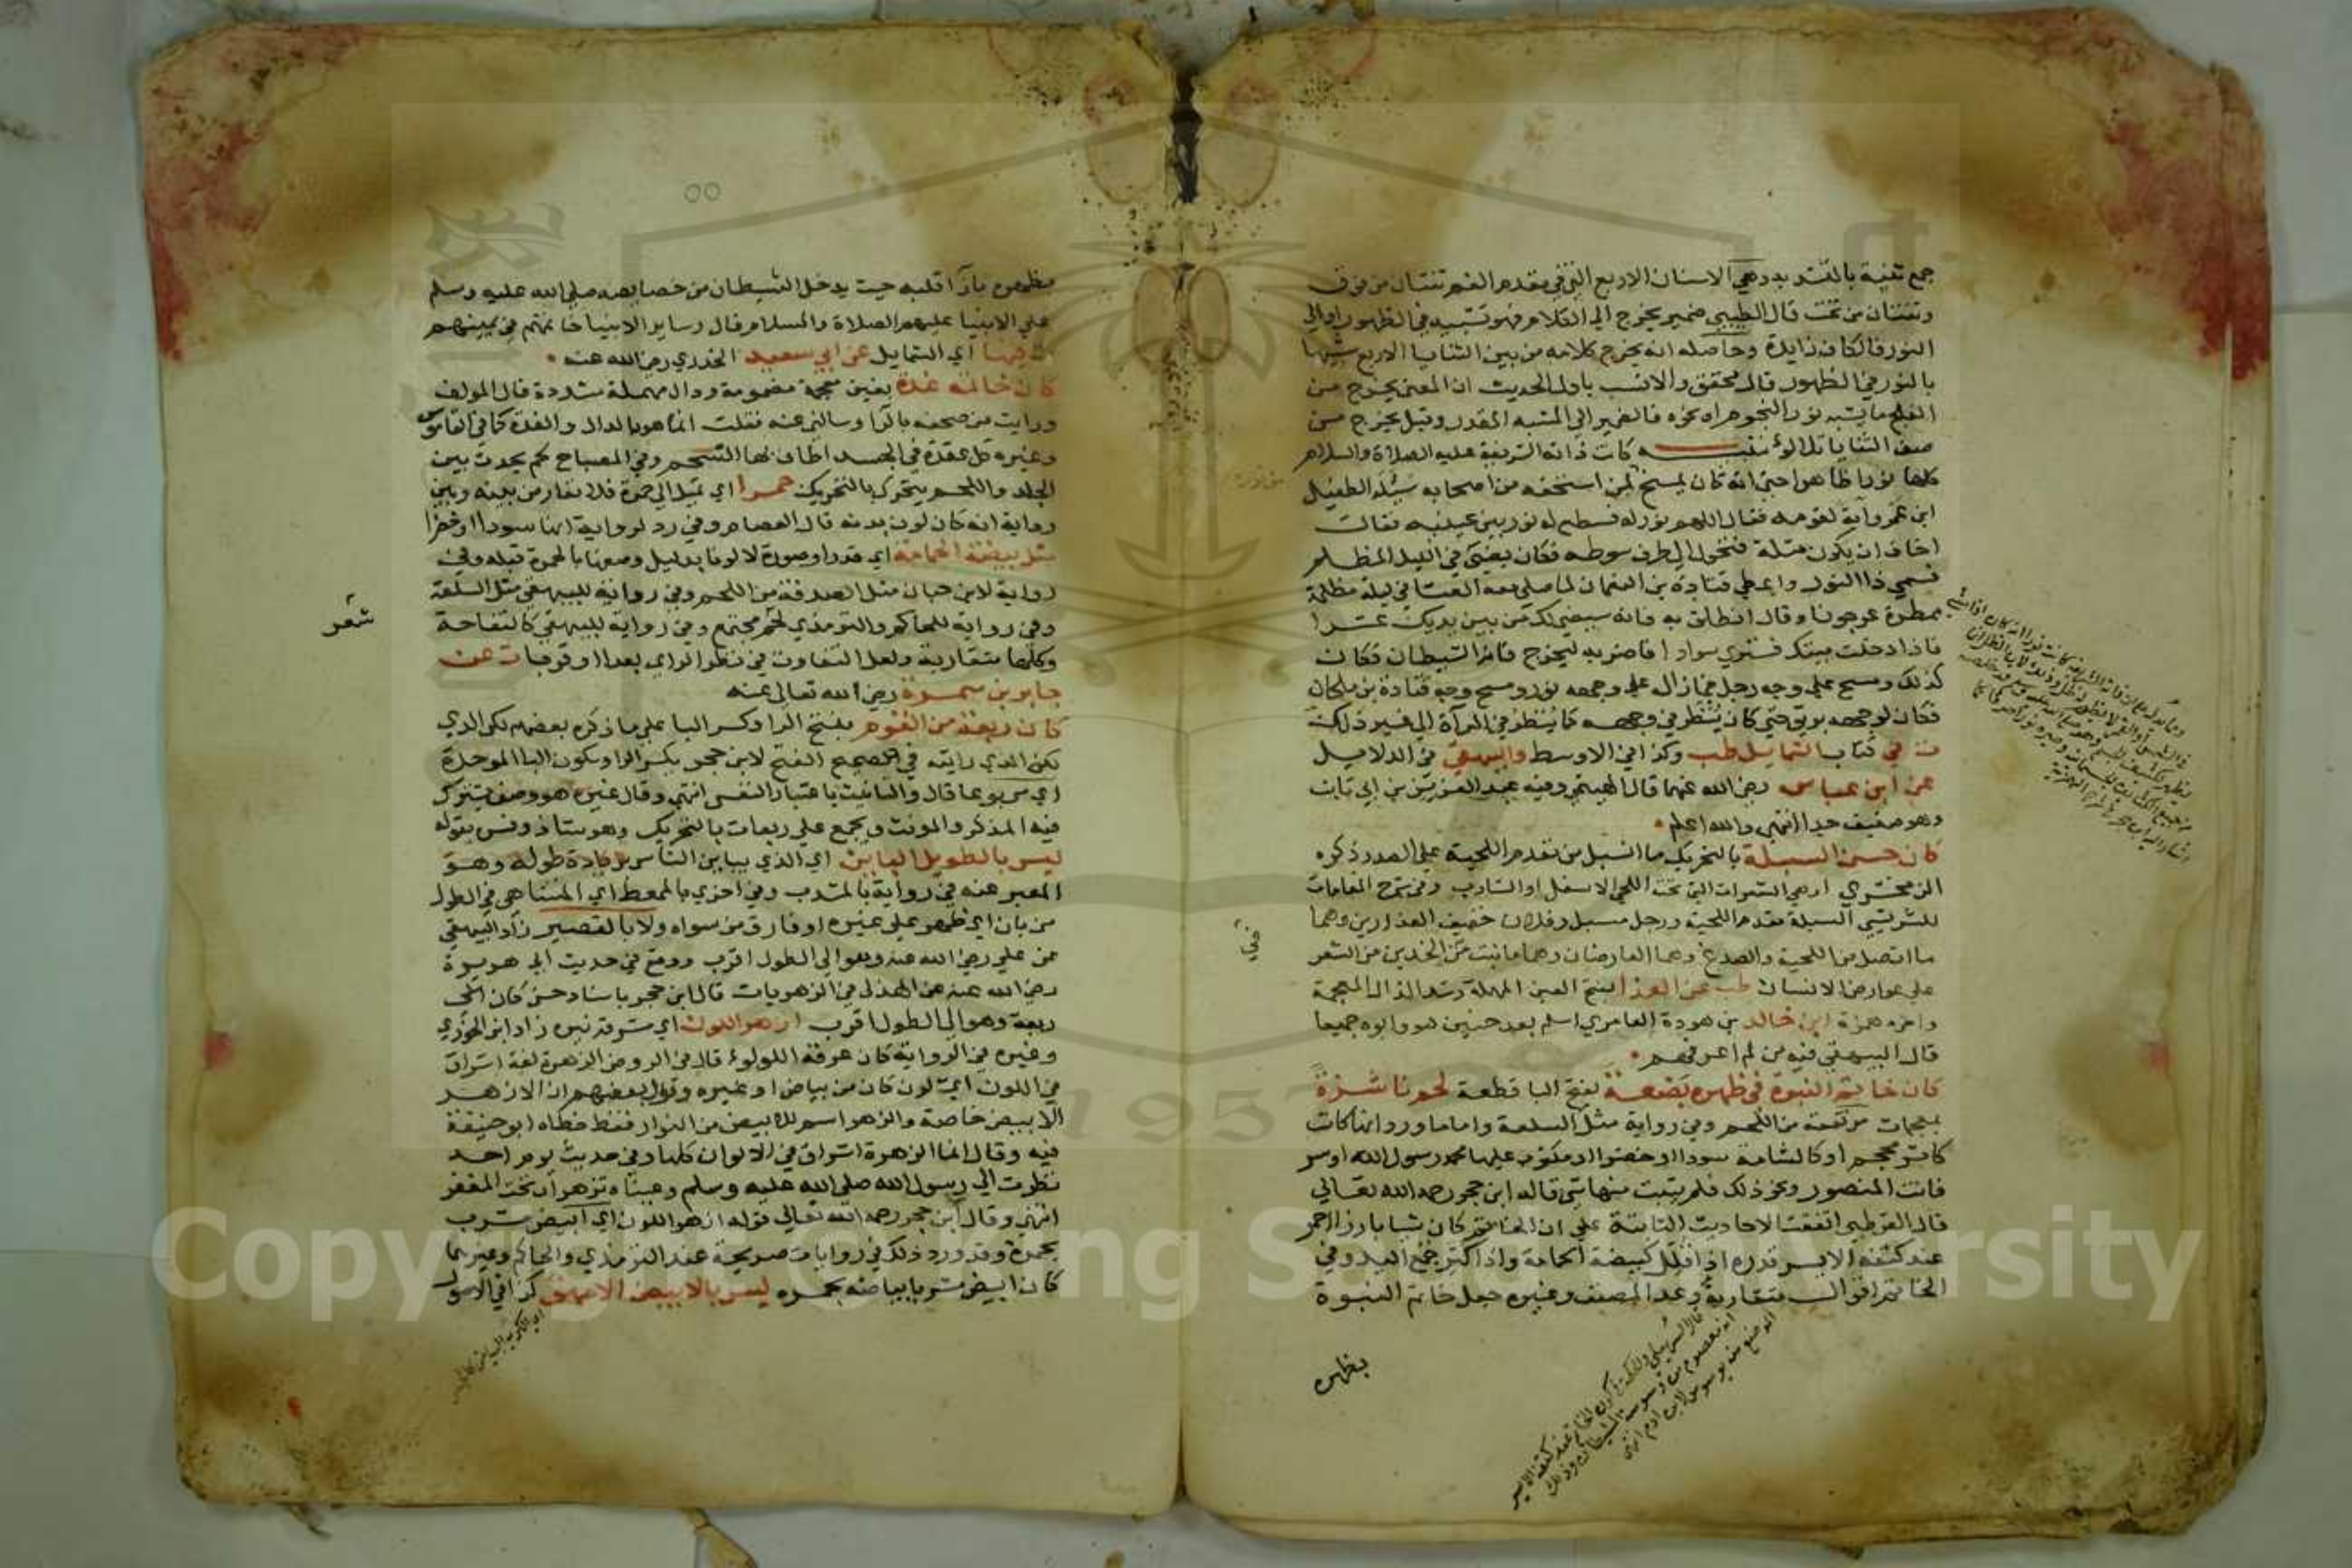 جمع ثنية بالتشديد وهي الاسنان الاربع التي في مقدم الفم ثنتان من فوق
وثنتان من تحت قال الطيبي ضمير يخرج الى الكلام فهو تشبيه في الظهور او الى
النور فالكاف زايدة وحاصله انه يخرج كلامه من بين الثنايا الاربع شبيها
بالنور في الظهور قال محقق والانسب باول الحديث ان المعنى يخرج من
الفلج ما يشبه نور النجوم او نحوه فالضمير الى المشبه المقدر وقيل يخرج من
صف الثنايا تلالؤ تنبيه كانت ذاته الشريفة عليه الصلاة والسلام
كلها نورا ظاهرا حتى انه كان يمنح لمن استحقه من اصحابه سئله الطفيل
ابن عمرو اية لقومه فقال اللهم نور له فسطع له نور بين عينيه فقال
اخاف ان يكون مثلة فتحول الى طرف سوطه فكان يضئ في الليل المظلم
فسمي ذا النور واعطى قتادة بن النعمان لما صلى معه العشا في ليلة مظلمة
ممطرة عرجونا وقال انطلق به فانه سيضئ لك من بين يديك عشرا
فاذا دخلت بيتك فسترى سوادا فاضربه ليخرج فانه الشيطان فكان
كذلك ومسح على وجه رجل فما زال على وجهه نور ومسح وجه قتادة بن ملحان
فكان لوجهه بريق حتى كان يُنظر في وجهه كما يُنظر في المرآة الى غير ذلك
ت في كتاب الشمايل طب وكذا في الاوسط والبيهقي في الدلايل
عن ابن عباس رضي الله عنهما قال الهيثمي وفيه عبد العزيز بن ابي ثابت
وهو ضعيف جدا انتهى والله اعلم
كان حسن السبلة بالتحريك ما اسبل من مقدم اللحية على الصدر ذكره
الزمخشري او هي الشعرات التي تحت اللحى الاسفل او الشارب وفي شرح المقامات
للشريشي السبلة مقدم اللحية ورجل مسبل وفلان خفيف العذارين وهما
ما اتصل من اللحية والصدغ وهما العارضان وهما ما نبت من الخدين من الشعر
على عوارض الانسان طب عن العدا بفتح العين المهملة وشد الدال المهملة
واخره همزة ابن خالد بن هودة العامري اسلم بعد حنين هو وابوه جميعا
قال البيهقي فيه من لم اعرفهم
كان خاتم النبوة في ظهره بَضعة بفتح البا قطعة لحم ناشزة
بمعجمات مرتفعة من اللحم وفي رواية مثل السلعة واما ما ورد انها كانت
كاثر محجم او كالشامة سودا او خضرا او مكتوب عليها محمد رسول الله او سر
فانت المنصور ونحو ذلك فلم يثبت منها شي قاله ابن حجر رحمه الله تعالى
قال القرطبي اتفقت الاحاديث الثابتة على ان الخاتم كان شيا بارزا احمر
عند كتفه الايسر قدره اذا قلل كبيضة الحمامة واذا كثر جُمع اليد وفي
الخاتم اقوال متقاربة وعد المصنف وغيره جعل خاتم النبوة
بظهره
قال السهيلي والحكمة في كون الخاتم عند كتفه الايسر
انه معصوم من وسوسة الشيطان
الموضع منه يوسوس لابن ادم انتهى
بظهره بازآ قلبه حيث يدخل الشيطان من خصايصه صلى الله عليه وسلم
على الانبيا عليهم الصلاة والسلام قال وساير الانبيا خاتمهم في يمينهم
ت فيها اي الشمايل عن ابي سعيد الخدري رضي الله عنه
كان خاتمه غدة بغين معجمة مضمومة ودال مهملة مشددة قال المولف
ورايت من صحفه بالرا وسالني عنه فقلت انما هو بالدال والغدة كما في القاموس
وغيره كل عقدة في الجسد اطاف بها الشحم وفي المصباح لحم يحدث بين
الجلد واللحم يتحرك بالتحريك حمرا اي تميل الى حمرة فلا تعارض بينه وبين
رواية انه كان لون بدنه قال العصام وفي رد لرواية انها سودا او خضرا
مثل بيضة الحمامة اي قدرا وصورة لا لونا بدليل وصفها بالحمرة قبله وفي
رواية لابن حبان مثل البندقة من اللحم وفي رواية للبيهقي مثل السلعة
وفي رواية للحاكم والترمذي لحم مجتمع وفي رواية للبيهقي كالتفاحة
وكلها متقاربة ولعل التفاوت في نظر الرائي بعدا او قربا ت عن
جابر بن سمرة رضي الله تعالى عنه
كان ربعة من القوم بفتح الرا وكسر البا على ما ذكره بعضهم لكن الذي
لكن الذي رايته في الصحيح الفتح لابن حجر بكسر الرا وسكون البا الموحدة
اي مربوعا قال والتانيث باعتبار النفس انتهى وقال غيره هو وصف يشترك
فيه المذكر والمونث ويجمع على ربعات بالتحريك وهو شاذ وفسر بقوله
ليس بالطويل الباين اي الذي يباين الناس بزيادة طوله وهو
المعبر عنه في رواية بالمشذب وفي اخرى بالممغط اي المتناهي في الطول
من بان اي ظهر على غيره او فارق من سواه ولا بالقصير زاد البيهقي
عن علي رضي الله عنه وهو الى الطول اقرب ووقع في حديث ابي هريرة
رضي الله عنه عن الهذلي في الزهريات قال ابن حجر باسناد حسن كان
ربعة وهو الى الطول اقرب ازهر اللون اي مشرقه نيره زاد ابن الجوزي
وغيره في الرواية كان عرقه اللولؤ قال في الروض الزهرة لغة اشراق
في اللون اي لون كان من بياض او غيره وقول بعضهم ان الازهر
الابيض خاصة والزهر اسم للابيض من النوار فقط خطاه ابو حنيفة
فيه وقال انما الزهرة اشراق في الالوان كلها وفي حديث يوم احد
نظرت الى رسول الله صلى الله عليه وسلم وعيناه تزهران تحت المغفر
انتهى وقال ابن حجر رحمه الله تعالى قوله ازهر اللون اي ابيض مشرب
بحمرة وقد ورد ذلك في روايات صريحة عند الترمذي والحاكم وغيرهما
كان ابيض مشربا بياضه بحمره ليس بالابيض الامهق كذا في الاصول
شعر
Copyright © King Saud University
1957